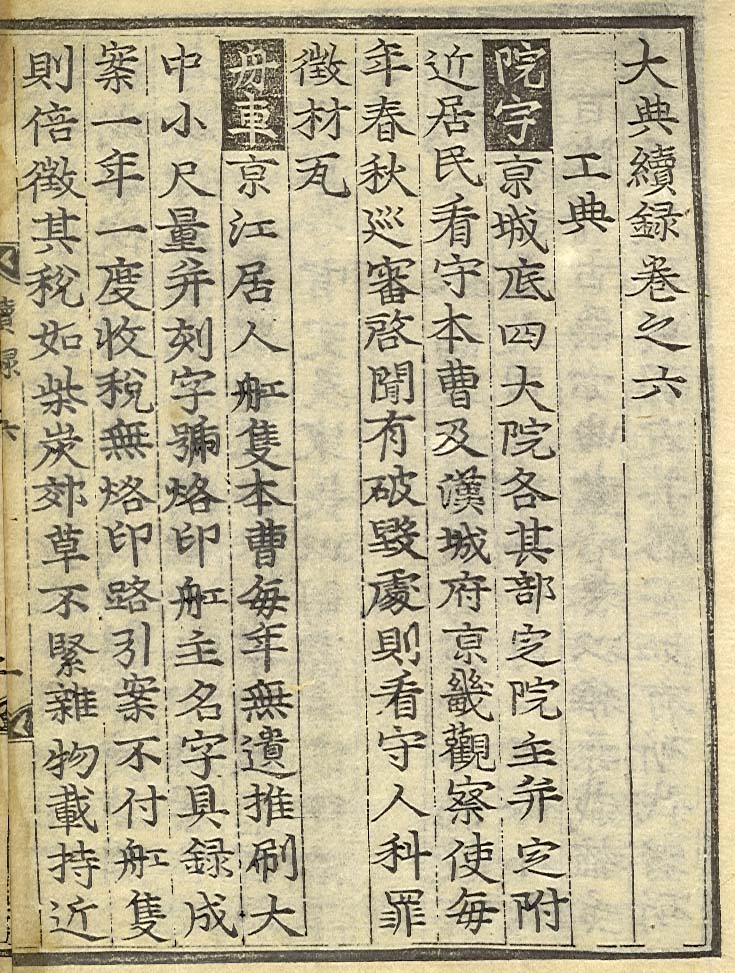 大典續録卷之六
工典
院宇京城底四大院各其部定院主并定附
近居民看守本曹及漢城府京畿觀察使每
年春秋巡審啓聞有破毀處則看守人科罪
徵材瓦
舟車京江居人舡隻本曹每年無遺推刷大
中小尺量并刻字號烙印舡主名字具録成
案一年一度收稅無烙印路引案不付舡隻
則倍徵其稅如柴炭郊草不緊雜物載持近
續録 六